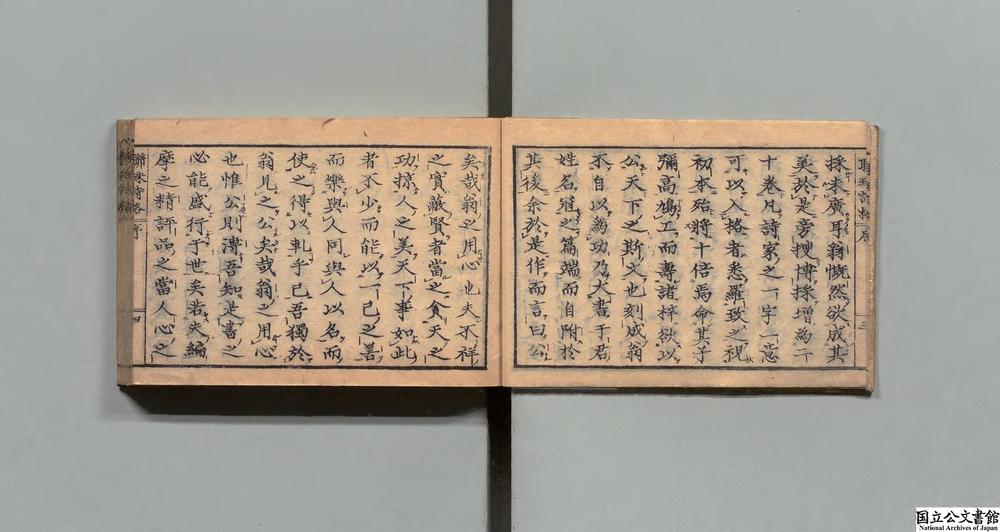 採未廣耳翁慨然欲成其
美於是旁搜博採增為二
十卷凡詩家之一字一意
可以入格者悉羅致之視
初本殆將十倍焉命其子
彌高鳩工而壽諸梓欲以
公天下之斯文也刻成翁
不自以為功乃大書于君
姓名冠之篇端而自附於
其後余於是作而言曰公
三
矣哉翁之用心也夫不祥
之實蔽賢者當之貪天之
功掠人之美天下事如此
者不少而能以一己之善
而樂與人同與人以名而
使之得以軋乎己吾獨於
翁見之公矣哉翁之用心
也惟公則溥吾知是書之
必能盛行于世矣若夫編
摩之精評品之當人心之
聯珠詩格 序
四
国立公文書館
National Archives of Japan